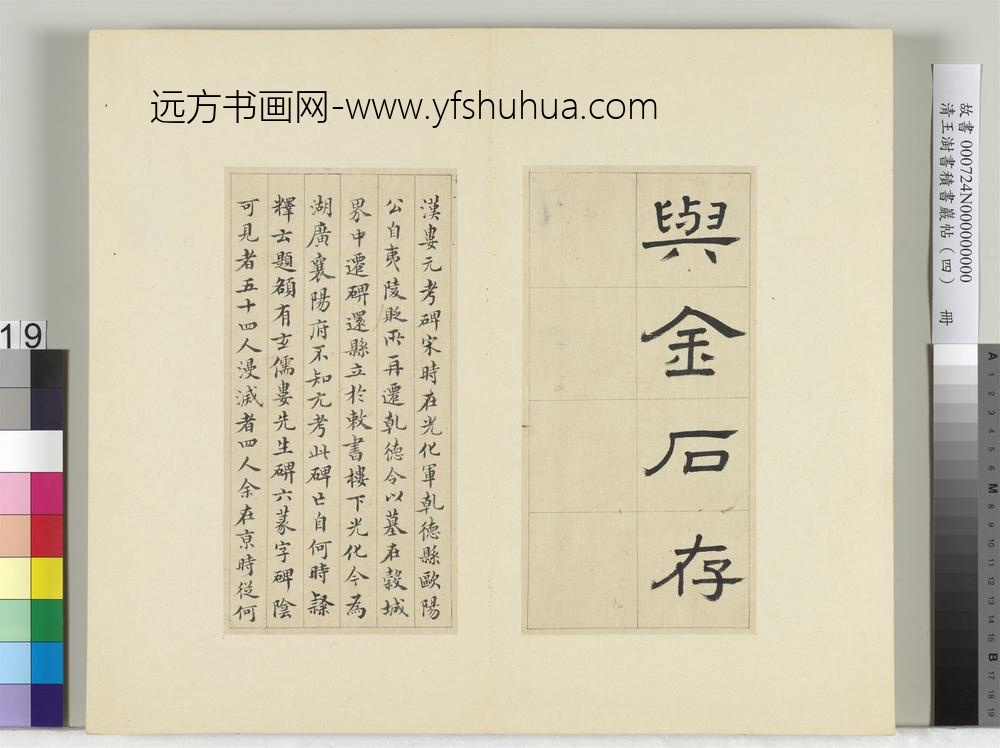 远方书画网-www.yfshuhua.com
故書 000724N000000000
清王澍書積書巖帖(四) 冊
與金石存
漢婁元考碑宋時在光化軍乹德縣歐陽
公自夷陵貶所再遷乹德今以墓在穀城
界中遷碑還縣立於敕書樓下光化今為
湖廣襄陽府不知元考此碑亡自何時隸
釋云題額有玄儒婁先生碑六篆字碑陰
可見者五十四人漫滅者四人余在京時從何
19
A 1 2 3 4 5 6 M 8 9 10 11 12 13 14 15 B 17 18 19